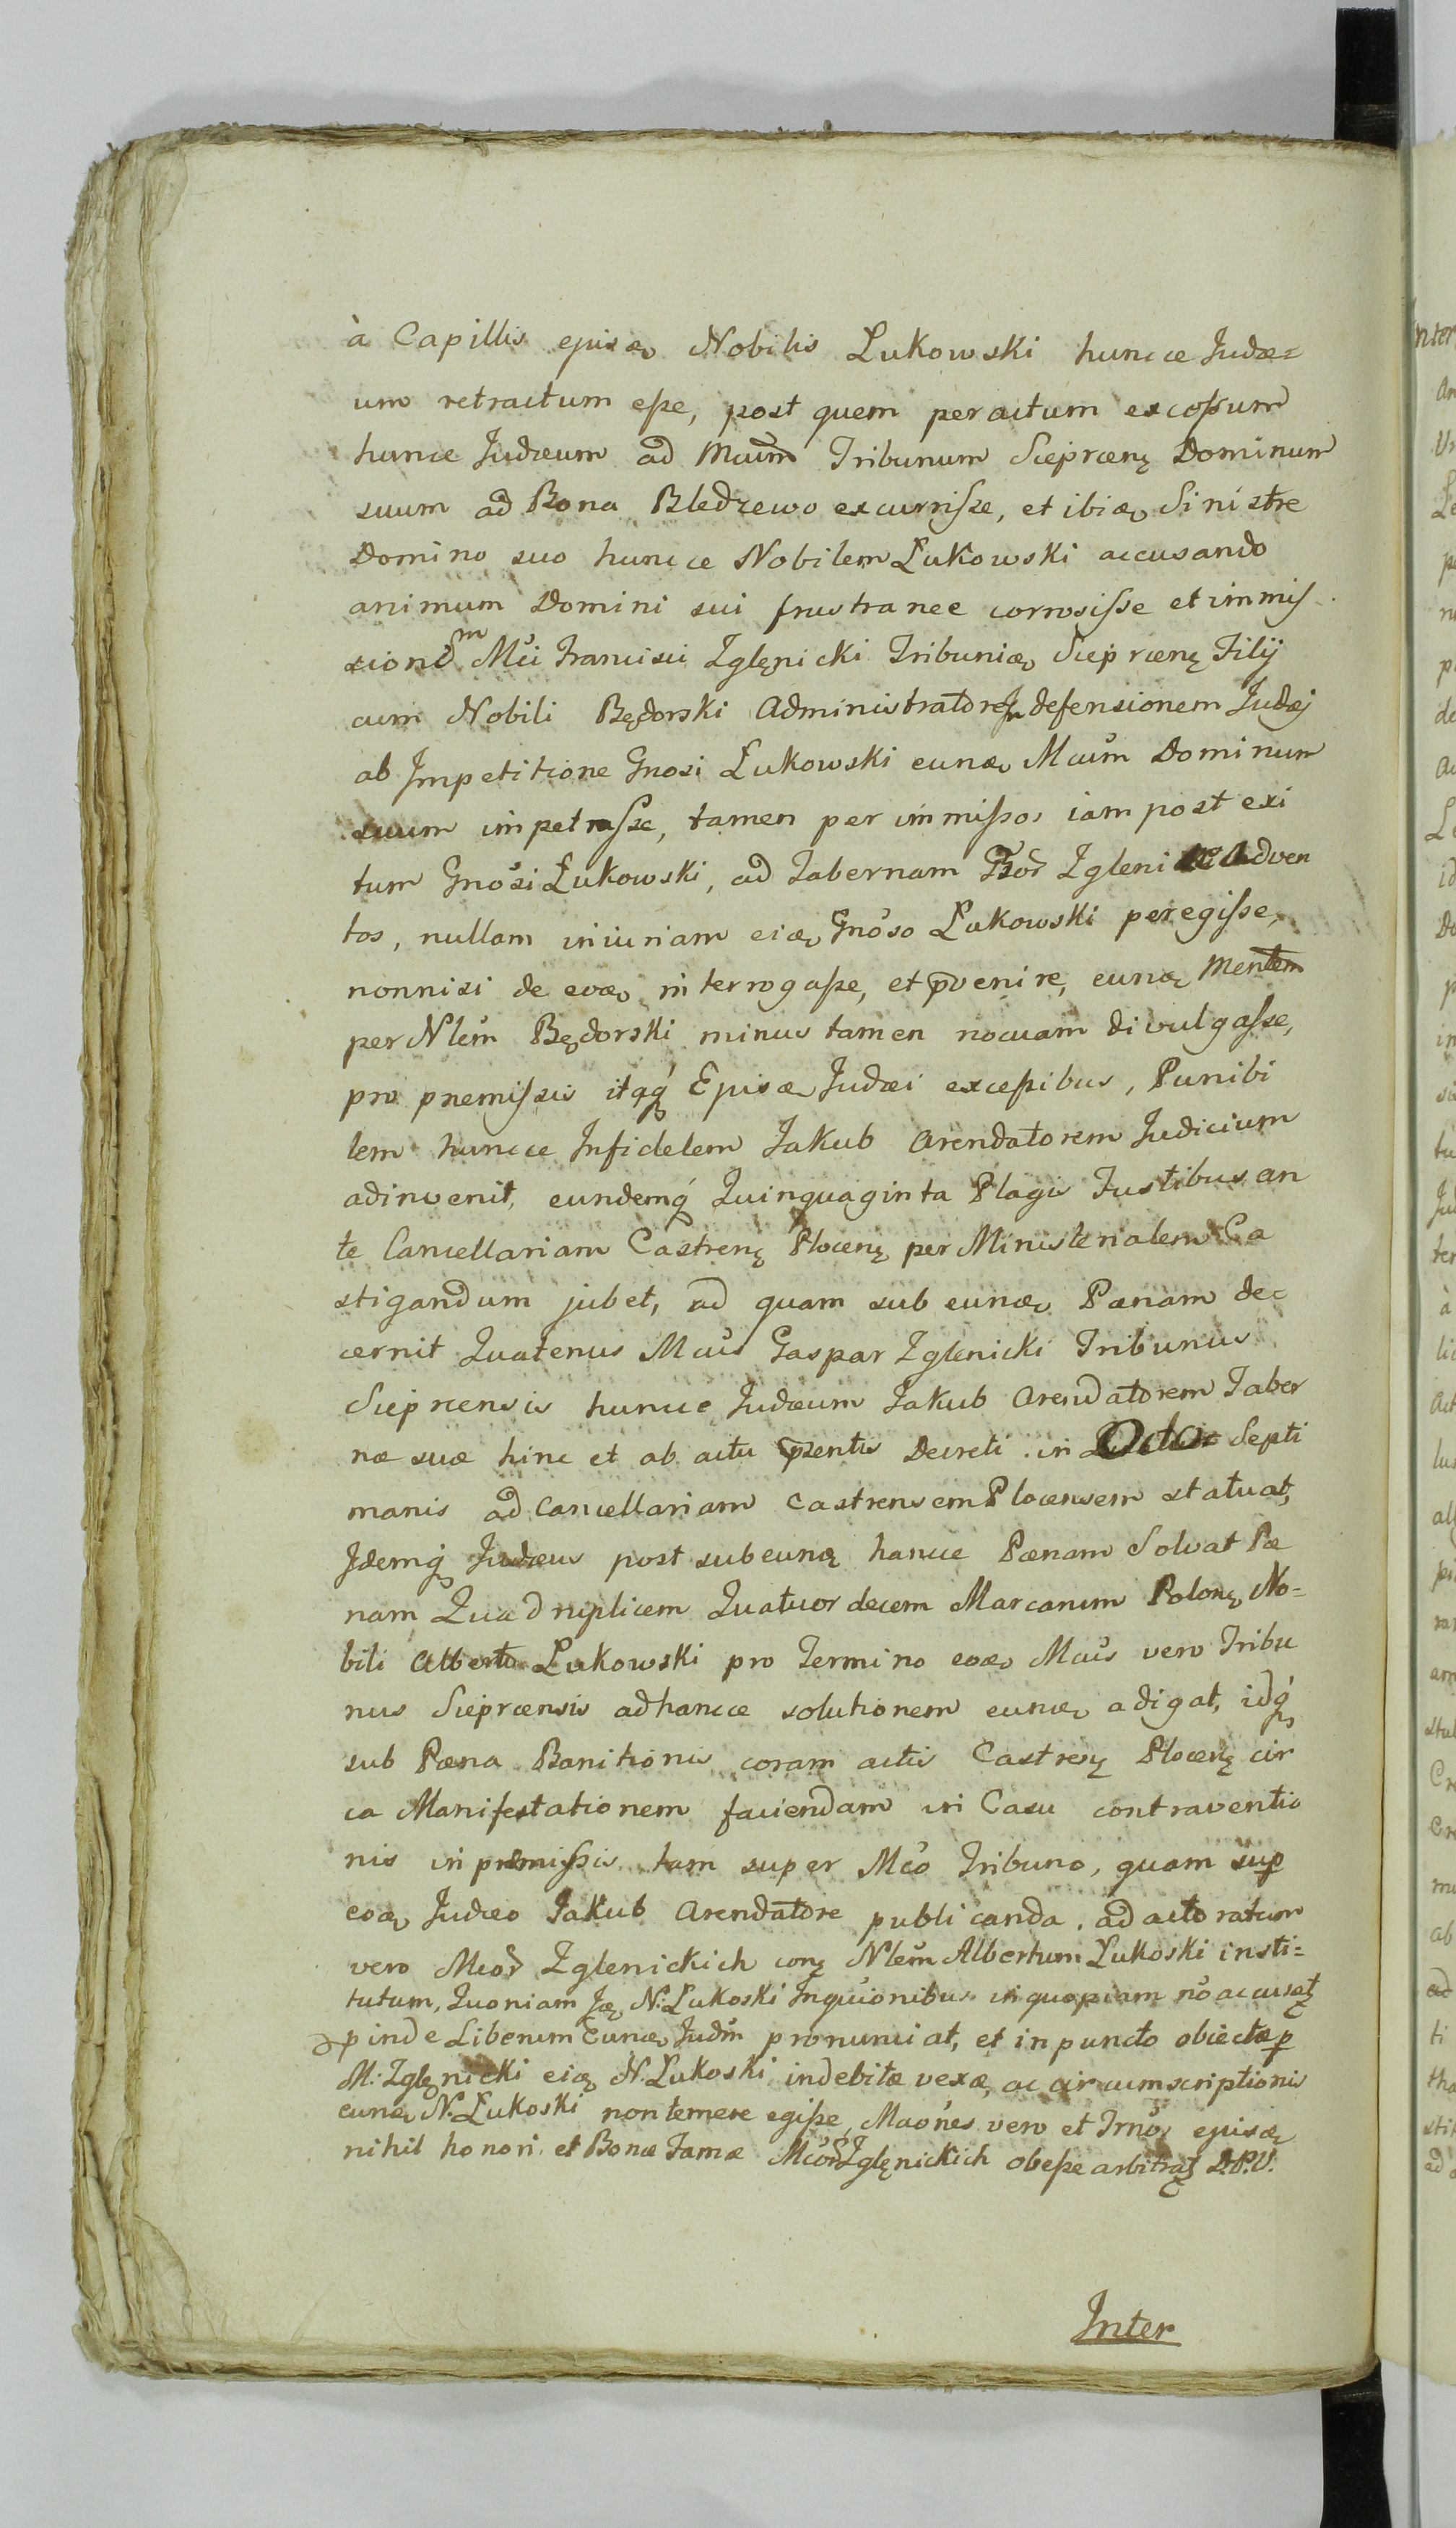 à Capillis ejusꝺ Nobilis Lukowski huncce Judæ=
um retractum eſse, post quem peractum excoſsum
huncce Judæum ad Mcum Tribunum Sieprcen̨ Dominum
suum ad Bona Bledzewo excurriſse, et ibiꝺ Sinistre
Domino suo huncce Nobilem Łukowski accusando
animum Domini sui frustranee corrosiſse et immiſ
sionem Mci Francisci Zglęnicki Tribuniꝺ Sieprcen̨ Filij
cum Nobili Będorski Administratore In defensionem Judæj
ab Jmpetitione Gnosi Łukowski eunꝺ Mcum Dominum
suum impetraſse, tamen per immiſsos iam post exi
tum Gnosi Łukowski, ad Tabernam Zgleni Adven
tos, nullam iniuriam eiꝺ Gnoso Łukowski peregiſse,
nonnisi de eoꝺ interrogaſse, et pvenire, eunꝺ Mentem
per Nlem Będorski minus tamen nocuam divulgaſse,
pro premiſsis itaq́ Ejusꝺ Judæi exceſsibus, Punibi
lem huncce Infidelem Jakub Arendatorem Judicium
adinvenit, eundemq́ Quinquaginta Plagis Fustibus an
te Cancellariam Castren̨ Plocen̨ per Ministerialem Ca
stigandum jubet, ad quam sub eunꝺ Pænam dec
cernit Quatenus Mcus Gaspar Zglenicki Tribunus
Sieprcensis huncce Judæum Jakub Arendatorem Taber
næ suæ hinc et ab actu pzentis Decreti in Octo Septi
manis ad Cancellariam Castrensem Plocensem statuat,
Jdemq́ Judæus post subeunꝺ hancce Pænam Solvat Pæ
nam Quadruplicem Quatuordecem Marcarum Polon̨ No=
bili Alberto Łukowski pro Termino eoꝺ Mcus vero Tribu
nus Sieprcensis ad hancce solutionem eunꝺ adigat, idq́
sub Pæna Banitionis coram actis Castren̨ Plocen̨ cir
ca Manifestationem faciendam in Casu contraventio
nis in præmiſsis tam super Mco Tribuno, quam sup
eoꝺ Judæo Jakub Arendatore publicanda, ad actoratum
vero Mcor Zglenickich con̨ Nlem Albertum Lukoski insti=
tutum, Quoniam Jꝺ N: Lukoski Inquionibus in quopiam no accusat̨
pinde Liberum eunꝺ Judm pronunciat, et in puncto obiectæ p
M: Zglęnicki eiꝺ N. Lukoski indebitæ vexæ, ac circumscriptionis
eunꝺ N. Lukoski non temere egiſse, Maones vero et Trnos ejusꝺ
nihil honori et Bonæ Famæ Mcor Zglęnickich obeſse arbitrat̨ D.P.V.
Inter